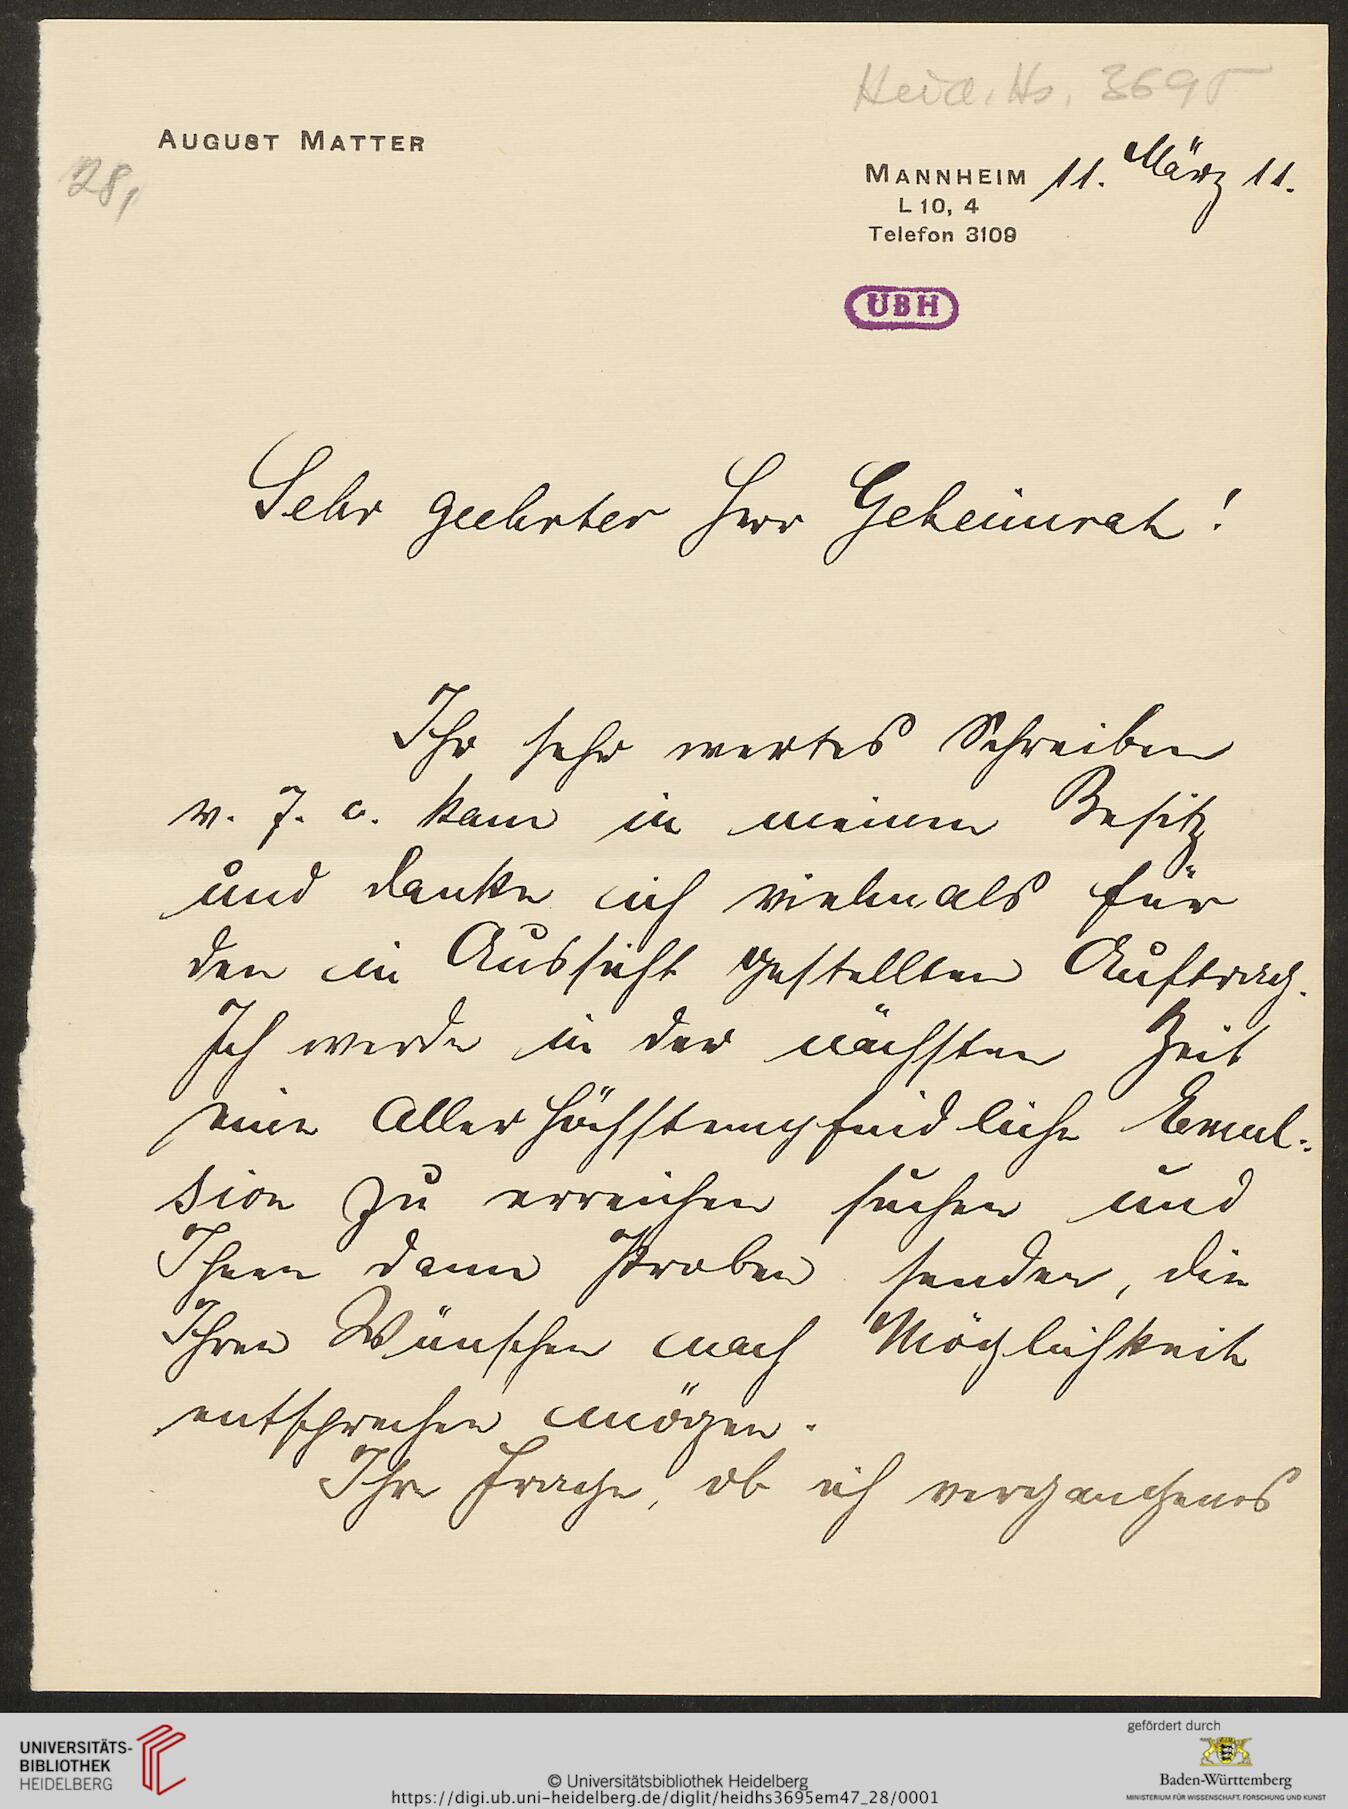 Heid. Hs. 3695
AUGUST MATTER
28,
MANNHEIM 11. März 11.
L 10, 4
Telefon 3109
UBH
Sehr geehrter Herr Geheimrat!
Ihr sehr wertes Schreiben
v. 7. c. kam in meinen Besitz
und danke ich vielmals für
den in Aussicht gestellten Auftrag.
Ich werde in der nächsten Zeit
eine allerhöchstempfindliche Emul-
sion zu erreichen suchen und
Ihnen dann Proben senden, die
Ihren Wünschen nach Möglichkeit
entsprechen mögen.
Ihre Frage, ob ich vergangenes
UNIVERSITÄTS-
BIBLIOTHEK
HEIDELBERG
© Universitätsbibliothek Heidelberg
https://digi.ub.uni-heidelberg.de/diglit/heidhs3695em47_28/0001
gefördert durch
Baden-Württemberg
MINISTERIUM FÜR WISSENSCHAFT, FORSCHUNG UND KUNST